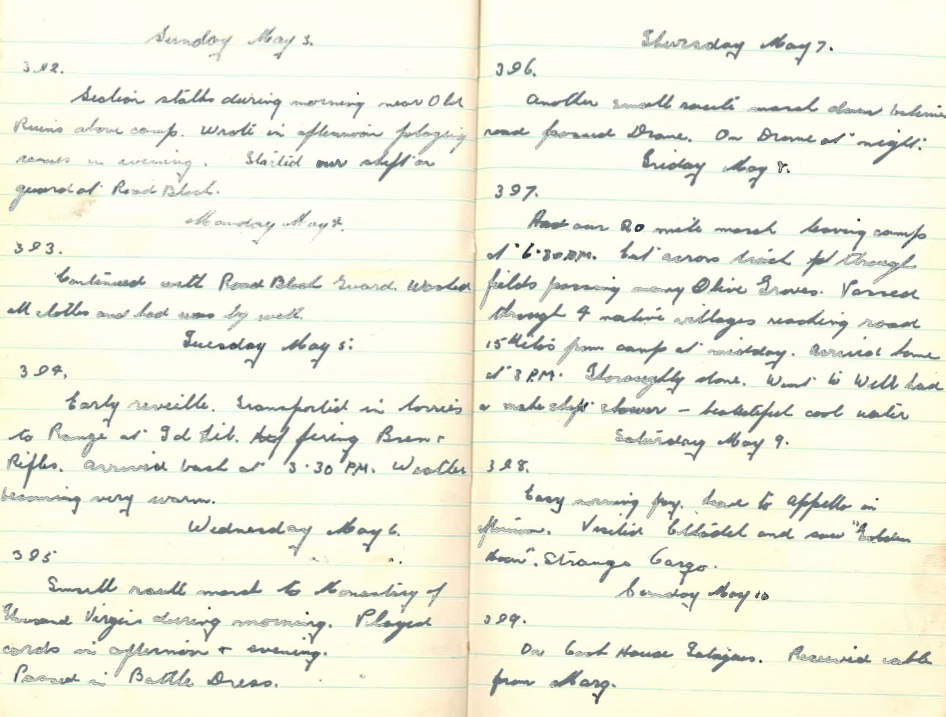 Sunday May 3.
392.
Section stalks during morning near Old
Ruins above camp. Wrote in afternoon playing
in evening. Started our shift on
guard at Road Block.
Monday May 4.
393.
Continued with Road Block Guard. Washed
all clothes and had by well.
Tuesday May 5.
394.
Early reveille. Transported in lorries
to Range at Jd Lib. firing Bren +
Rifles. Arrived back at 3.30 P.M. Weather
becoming very warm.
Wednesday May 6.
395
Small route march to Monastery of
Thousand Virgins during morning. Played
cards in afternoon + evening.
Passed in Battle Dress.
Thursday May 7.
396.
Another small route march down
road passed Drome. On Drome at night.
Friday May 8.
397.
Had our 20 mile march leaving camp
at 6.30 A.M. Cut across through
fields passing many Olive Groves. Passed
through 4 native villages reaching road
15 kilos from camp at midday. Arrived home
at 3 P.M. Thoroughly done. Went to Well had
a make shift shower – cool water
Saturday May 9.
398.
Easy morning pay. Leave to Aleppo in
Visited Citadel and saw "
Hour". Strange Cargo.
Sunday May 10
399.
On Cook House Fatigues. Received cable
from Marg.